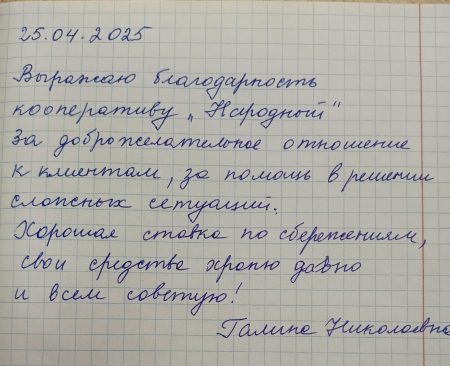 25.04.2025
Выражаю благодарность
кооперативу „Народный“
за доброжелательное отношение
к клиентам, за помощь в решении
сложных сетуаций.
Хорошая ставка по сбережениям,
свои средства храню давно
и всем советую!
Галина Николаевна